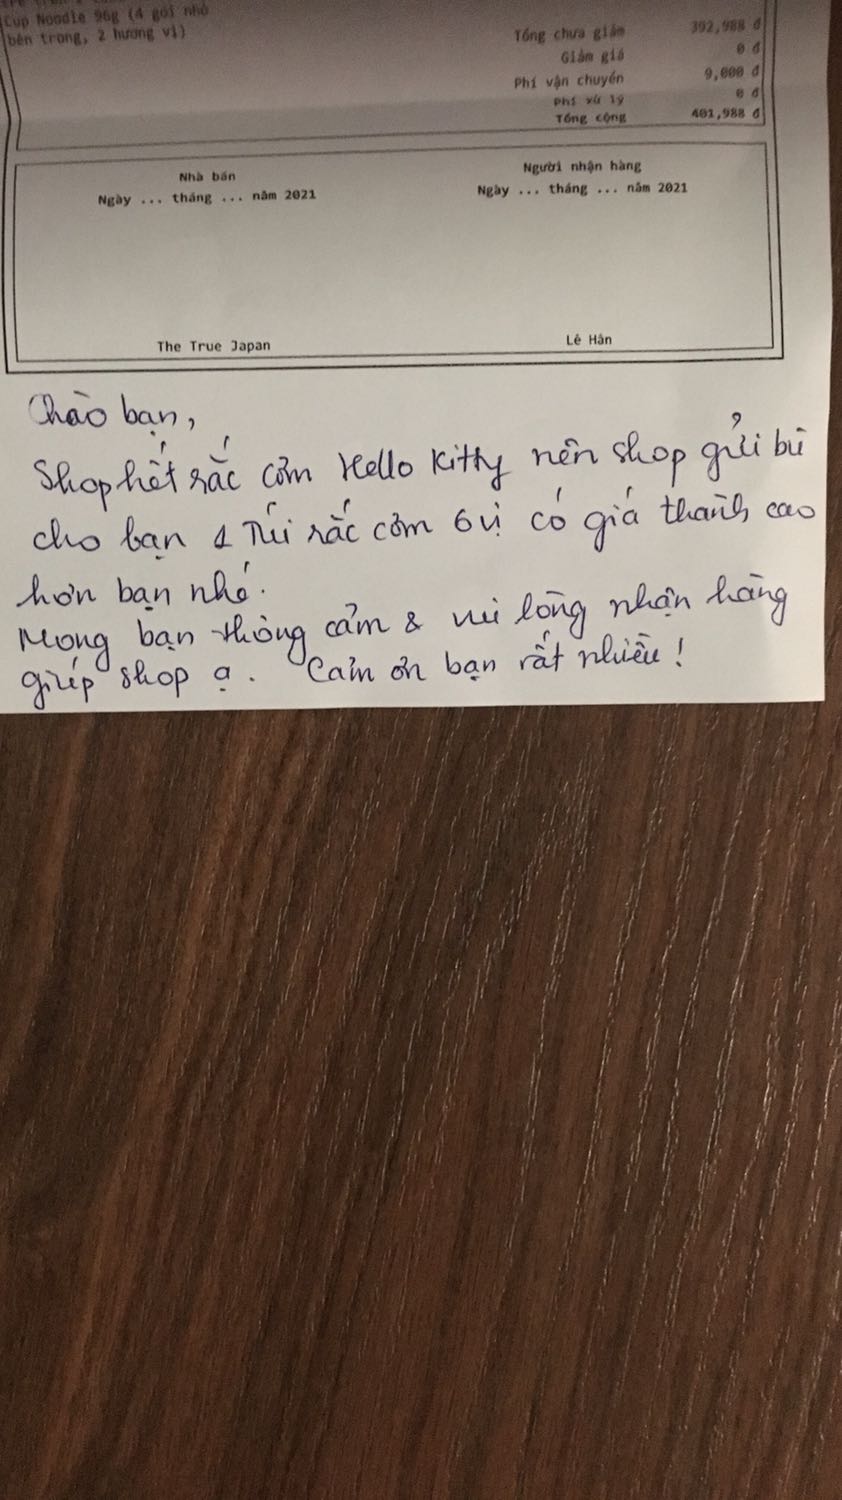 Cup Noodle 96g (4 gói nhỏ
bên trong, 2 hương vị)
Tổng chưa giảm 392,988 đ
Giảm giá 0 đ
Phí vận chuyển 9,000 đ
Phí xử lý 0 đ
Tổng cộng 401,988 đ
Nhà bán
Ngày ... tháng ... năm 2021
The True Japan
Người nhận hàng
Ngày ... tháng ... năm 2021
Lê Hân
Chào bạn,
Shop hết rắc cơm Hello Kitty nên shop gửi bù
cho bạn 1 Túi rắc cơm 6 vị có giá thành cao
hơn bạn nhé.
Mong bạn thông cảm & vui lòng nhận hàng
giúp shop ạ. Cảm ơn bạn rất nhiều!